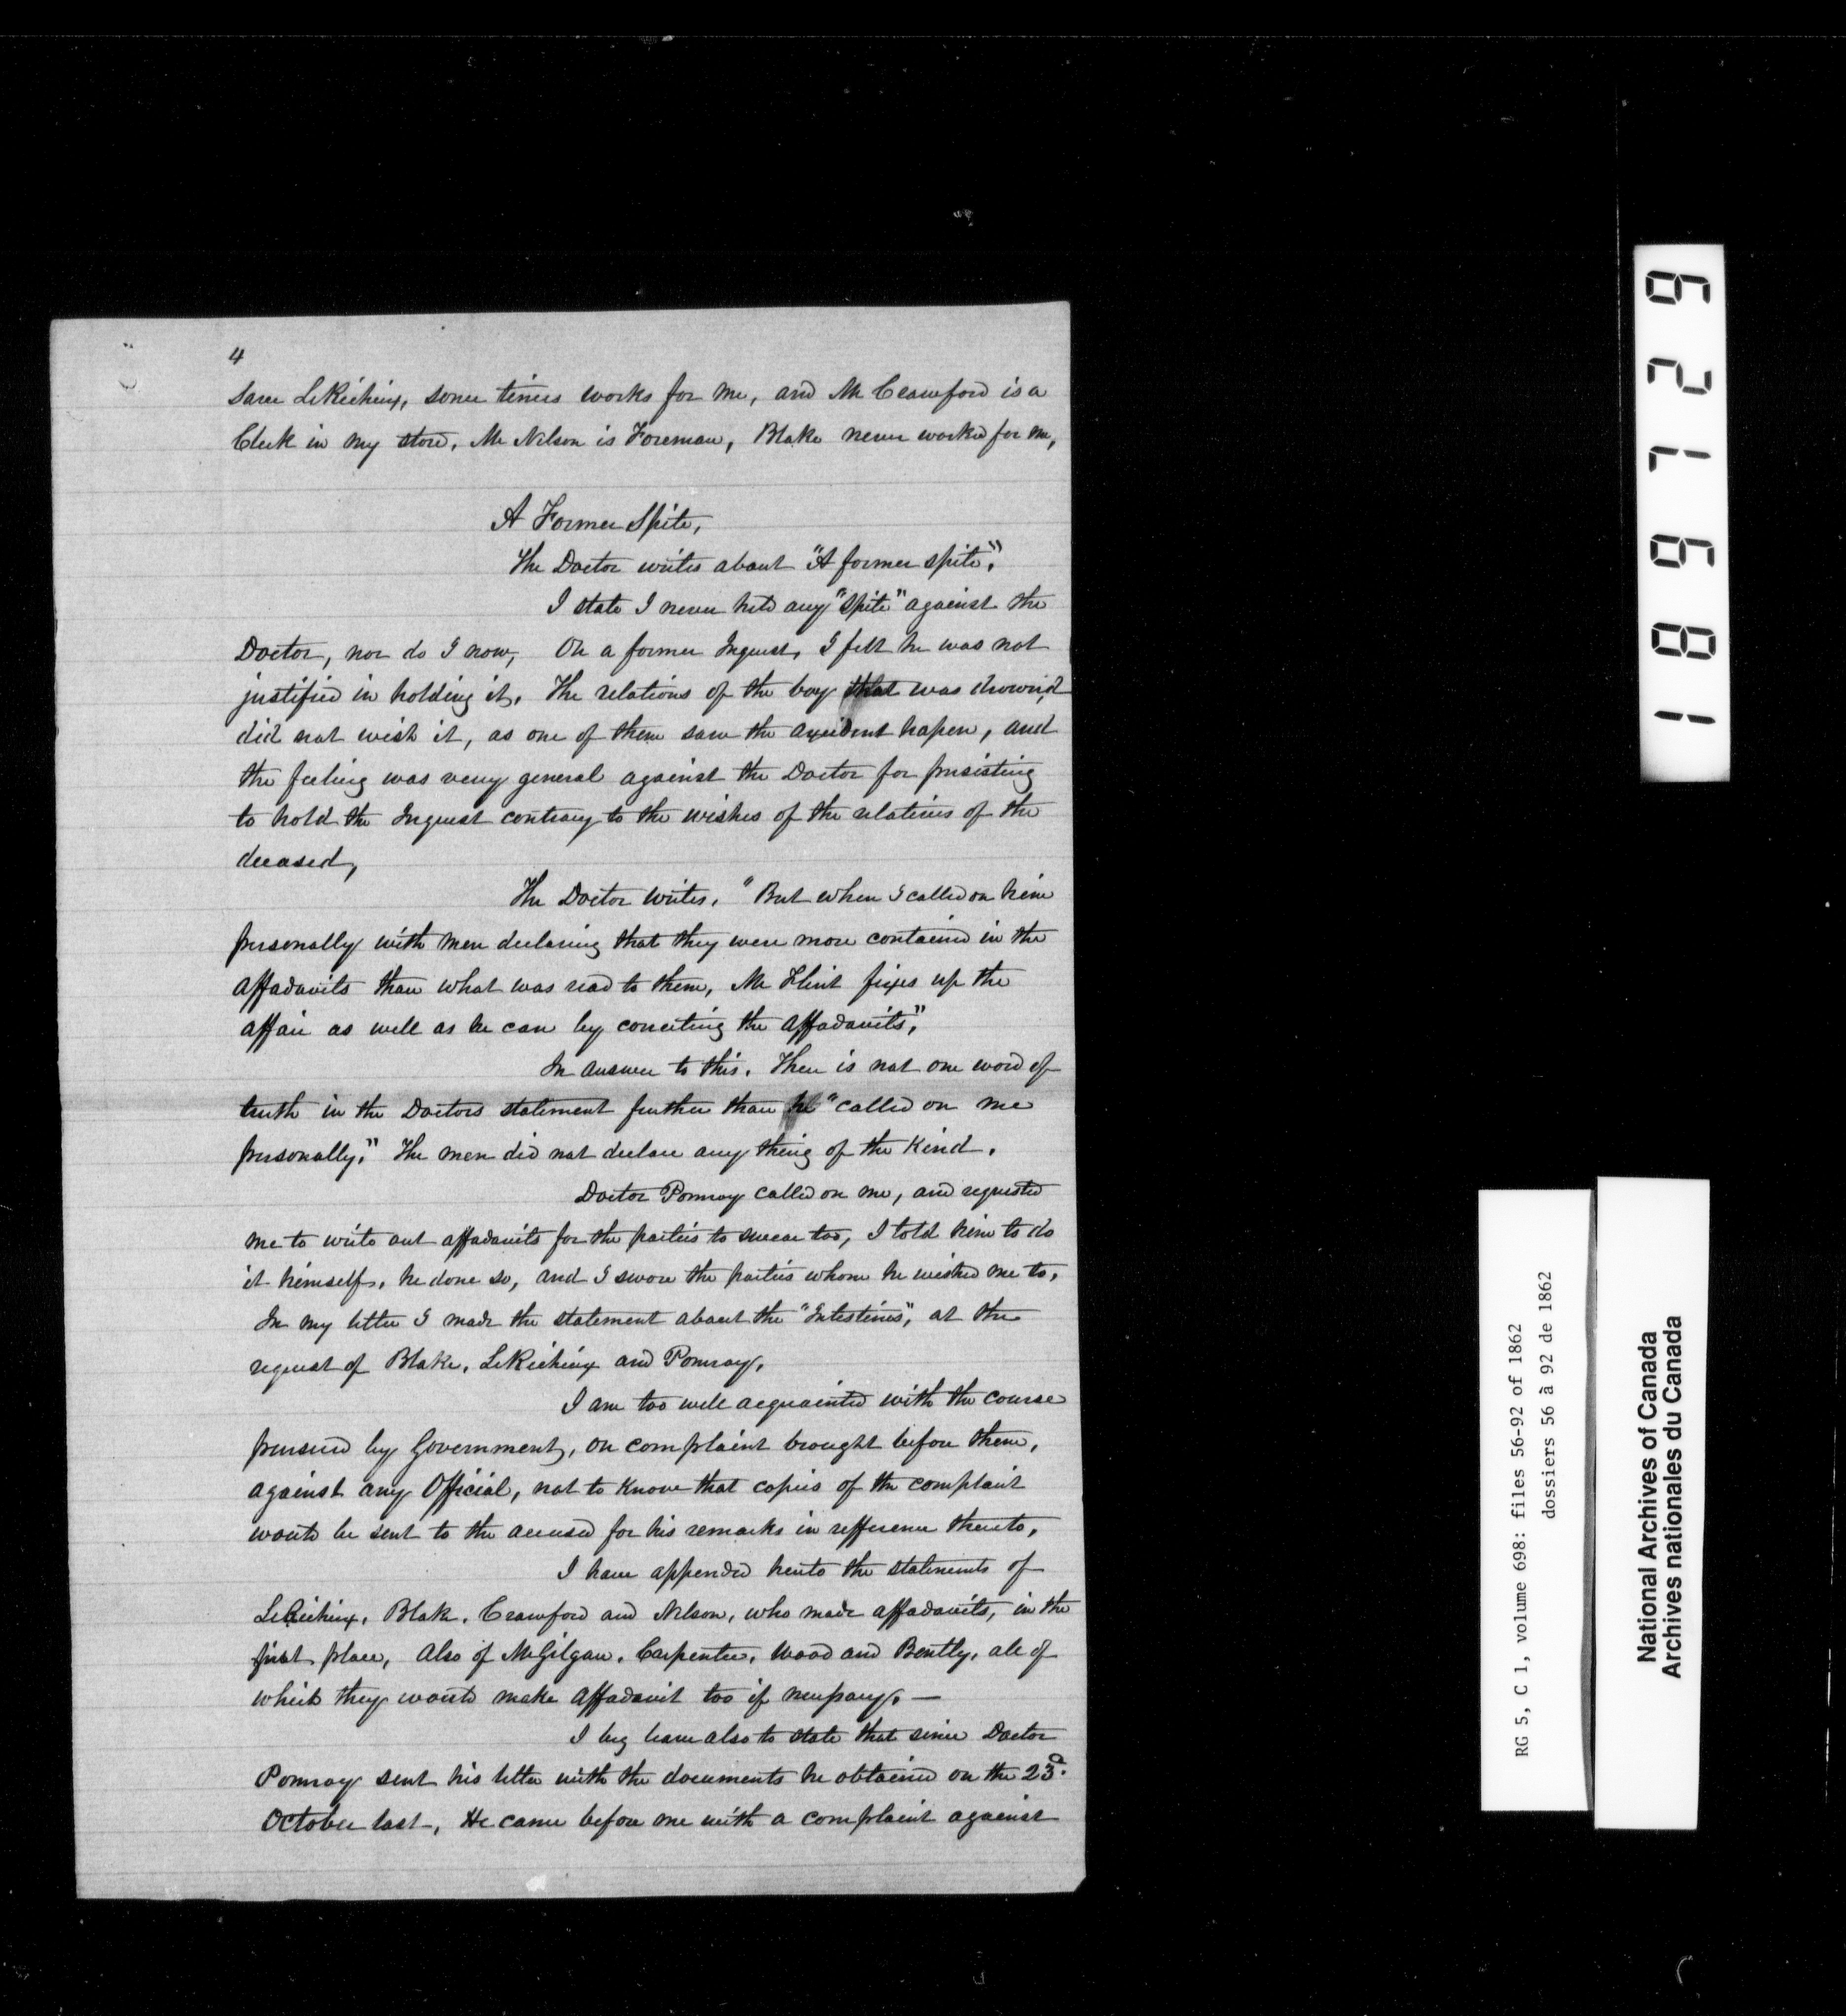 4
Saw LeRichieux, some times works for me, and Mr Crawford is a
Clerk in my store, Mr Nelson is Foreman, Blake never worked for me,
A Former Spite,
The Doctor writes about "A former spite".
I state I never held any "spite" against the
Doctor, nor do I now, On a former Inquest, I felt he was not
justified in holding it. The relations of the boy that was drowned
did not wish it, as one of them saw the accident hapen, and
the feeling was very general against the Doctor for persisting
to hold the Inquest contrary to the wishes of the relatives of the
deceased,
The Doctor writes. "But when I called on him
personally with men declaring that they were more contained in the
affadavits than what was read to them, Mr Flint fixes up the
affair as well as he can by correcting the affadavits,"
In answer to this. There is not one word of
truth in the Doctors statement further than he "called on me
personally." The men did not declare any thing of the kind.
Doctor Pomroy called on me, and requested
me to write out affadavits for the parties to swear too, I told him to do
it himself, he done so, and I swore the parties whom he wished me to,
In my letter I made the statement about the "Intestines", at the
request of Blake, LeRichieux and Pomroy.
I am too well acquainted with the course
pursued by Government, on complaint brought before them,
against any Official, not to know that copies of the complaint
would be sent to the accused for his remarks in refference thereto,
I have appended hereto the statements of
LeRichieux, Blake, Crawford and Nelson, who made affadavits, in the
first place, Also of McGilgan, Carpenter, Wood and Bently, all of
which they would make affadavit too if necessary. —
I beg leave also to state that since Doctor
Pomroy sent his letter with the documents he obtained on the 23d
October last, He came before me with a complaint against
189729
RG 5, C 1, volume 698: files 56-92 of 1862
dossiers 56 à 92 de 1862
National Archives of Canada
Archives nationales du Canada